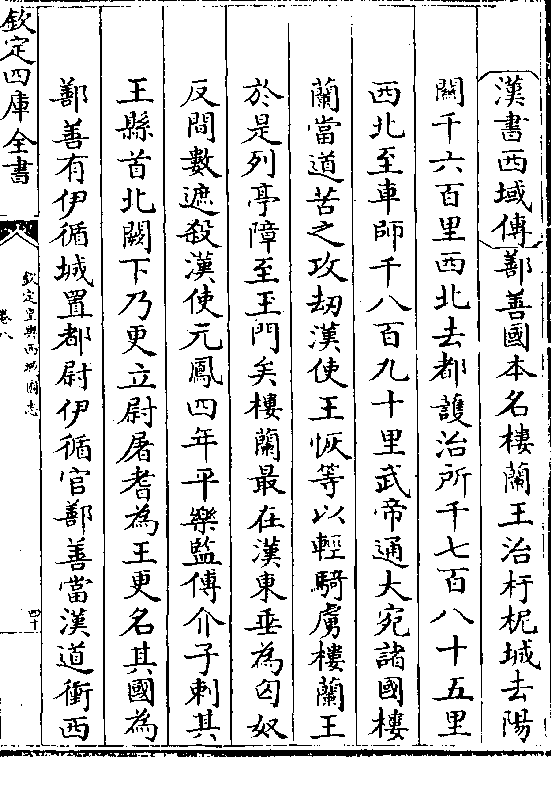 漢書西域傳鄯善國本名樓蘭王治扜柅城去陽
關千六百里西北去都護治所千七百八十五里
西北至車師千八百九十里武帝通大宛諸國樓
蘭當道苦之攻劫漢使王恢等以輕騎虜樓蘭王
於是列亭障至玉門矣樓蘭最在漢東垂為匈奴
反間數遮殺漢使元鳳四年平樂監傅介子刺其
王縣首北闕下乃更立尉屠耆為王更名其國為
鄯善有伊循城置都尉伊循官鄯善當漢道衝西
欽定四庫全書
欽定皇輿西域圖志
卷八
四十